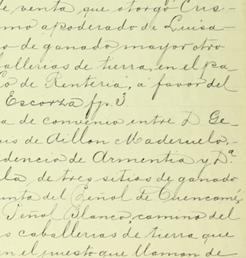 de venta que otorgó Cris-
mo apoderado de Luisa
o de ganado mayor otro
ballerias de tierra, en el pa
co de Renteria, a favor del
Escorza fp. 3
ta de convenio entre D Ge-
uis de Aillon Maderuelo,
idencia de Armentia y Dª
la, de tres sitios de ganado
unta del Peñol de Cuencamé
Peñol Blanco, camino del
s caballerias de tierra que
en el puesto que llaman de